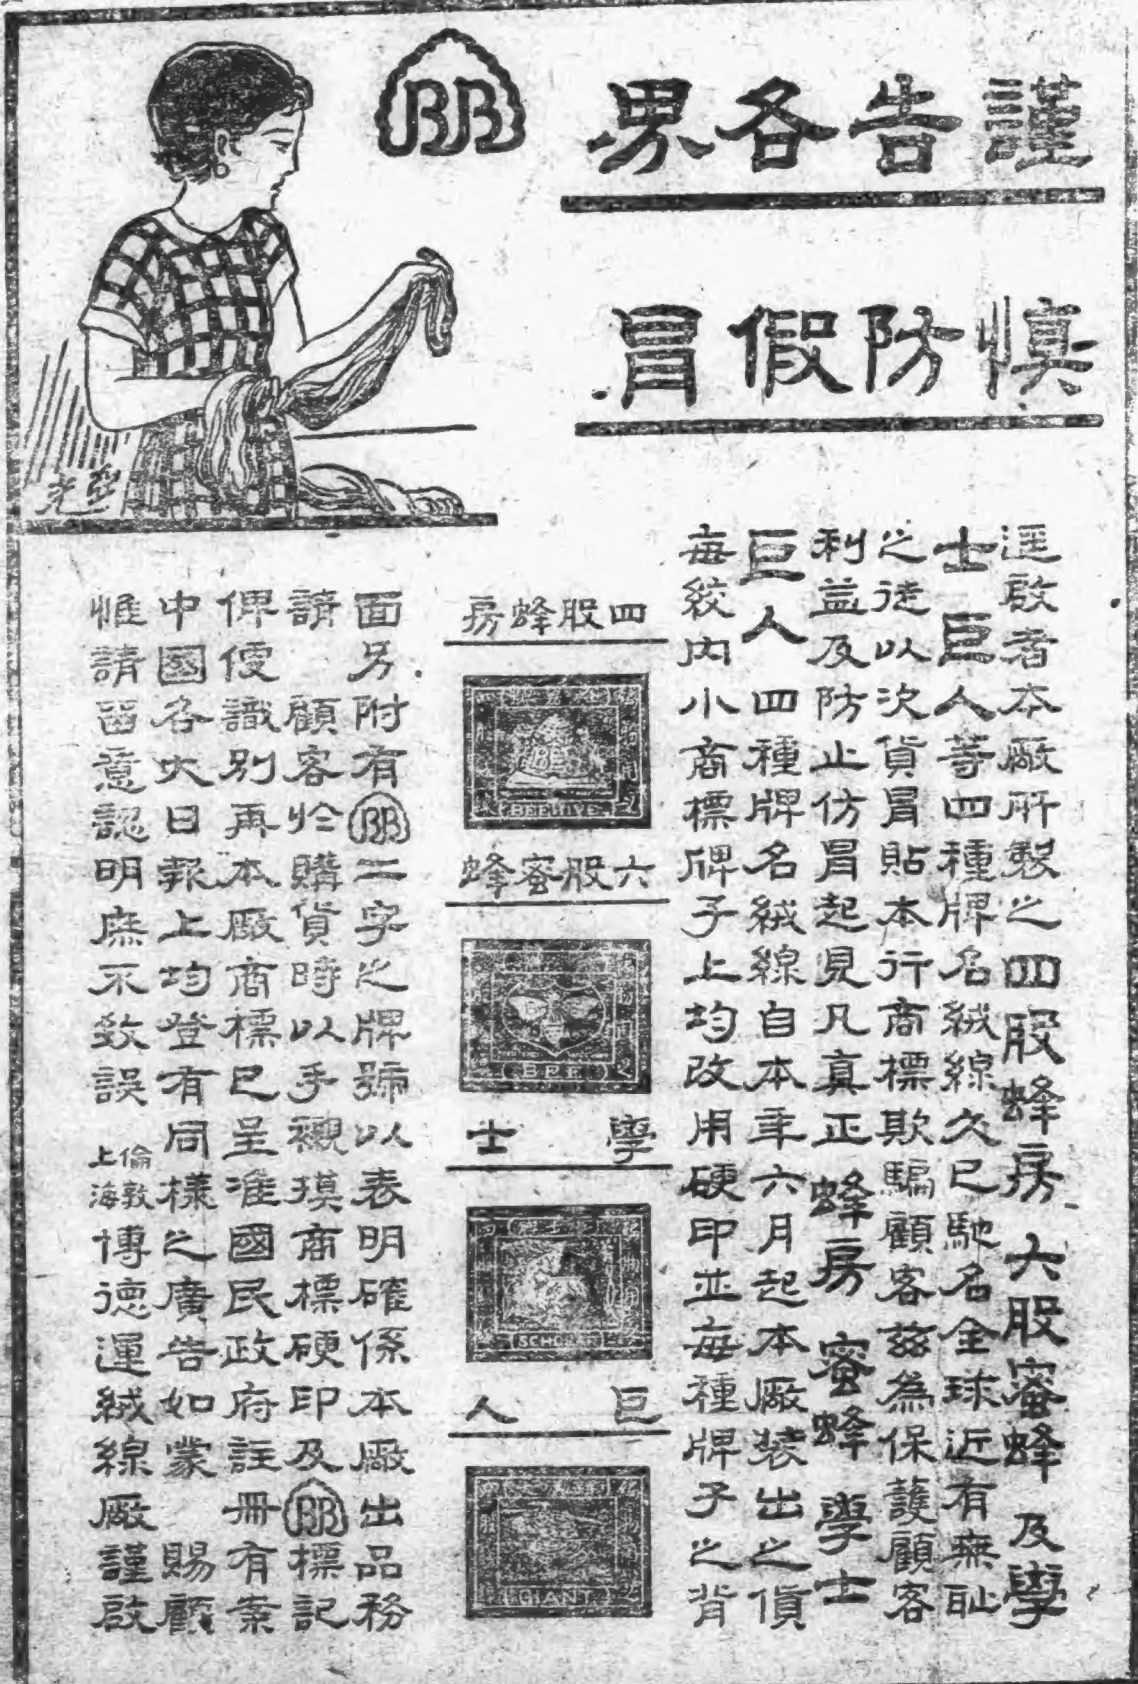 謹告各界
慎防假冒
BB
亞光
逕啟者本廠所製之四股蜂房六股蜜蜂及學
士巨人等四種牌名絨線久已馳名全球近有無恥
之徒以次貨冒貼本行商標欺騙顧客茲為保護顧客
利益及防止仿冒起見凡真正蜂房 蜜蜂 學士
巨人 四種牌名絨線自本年六月起本廠裝出之貨
每絞內小商標牌子上均改用硬印並每種牌子之背
四股蜂房
BEEHIVE
六股蜜蜂
BEE
學士
SCHOLAR
巨人
GIANT
面另附有BB二字之牌號以表明確係本廠出品務
請 顧客於購貨時以手襯摸商標硬印及BB標記
俾便識別再本廠商標已呈准國民政府註冊有案
中國各大日報上均登有同樣之廣告如蒙 賜顧
惟請畱意認明庶不致誤 倫敦上海博德運絨線廠謹啟